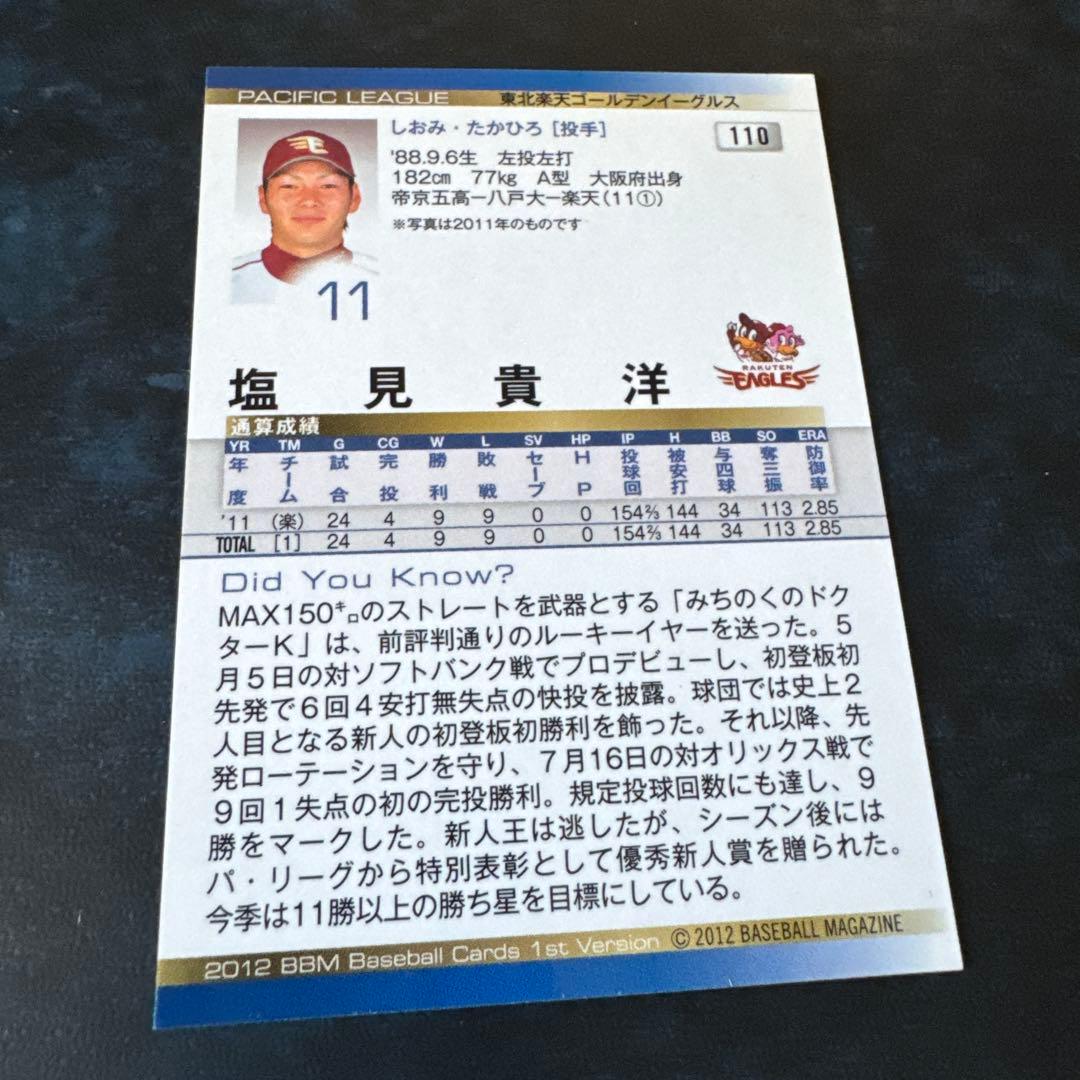 PACIFIC LEAGUE 東北楽天ゴールデンイーグルス
しおみ・たかひろ [投手] 110
'88.9.6生 左投左打
182㎝ 77㎏ A型 大阪府出身
帝京五高ー八戸大ー楽天(11①)
※写真は2011年のものです
11
塩見貴洋
RAKUTEN
EAGLES
通算成績
YR TM G CG W L SV HP IP H BB SO ERA
年度 チーム 試合 完投 勝利 敗戦 セーブ HP 投球回 被安打 与四球 奪三振 防御率
'11 (楽) 24 4 9 9 0 0 154⅔ 144 34 113 2.85
TOTAL [1] 24 4 9 9 0 0 154⅔ 144 34 113 2.85
Did You Know?
MAX150㌔のストレートを武器とする「みちのくのドク
ターK」は、前評判通りのルーキーイヤーを送った。5
月5日の対ソフトバンク戦でプロデビューし、初登板初
先発で6回4安打無失点の快投を披露。球団では史上2
人目となる新人の初登板初勝利を飾った。それ以降、先
発ローテーションを守り、7月16日の対オリックス戦で
9回1失点の初の完投勝利。規定投球回数にも達し、9
勝をマークした。新人王は逃したが、シーズン後には
パ・リーグから特別表彰として優秀新人賞を贈られた。
今季は11勝以上の勝ち星を目標にしている。
2012 BBM Baseball Cards 1st Version © 2012 BASEBALL MAGAZINE